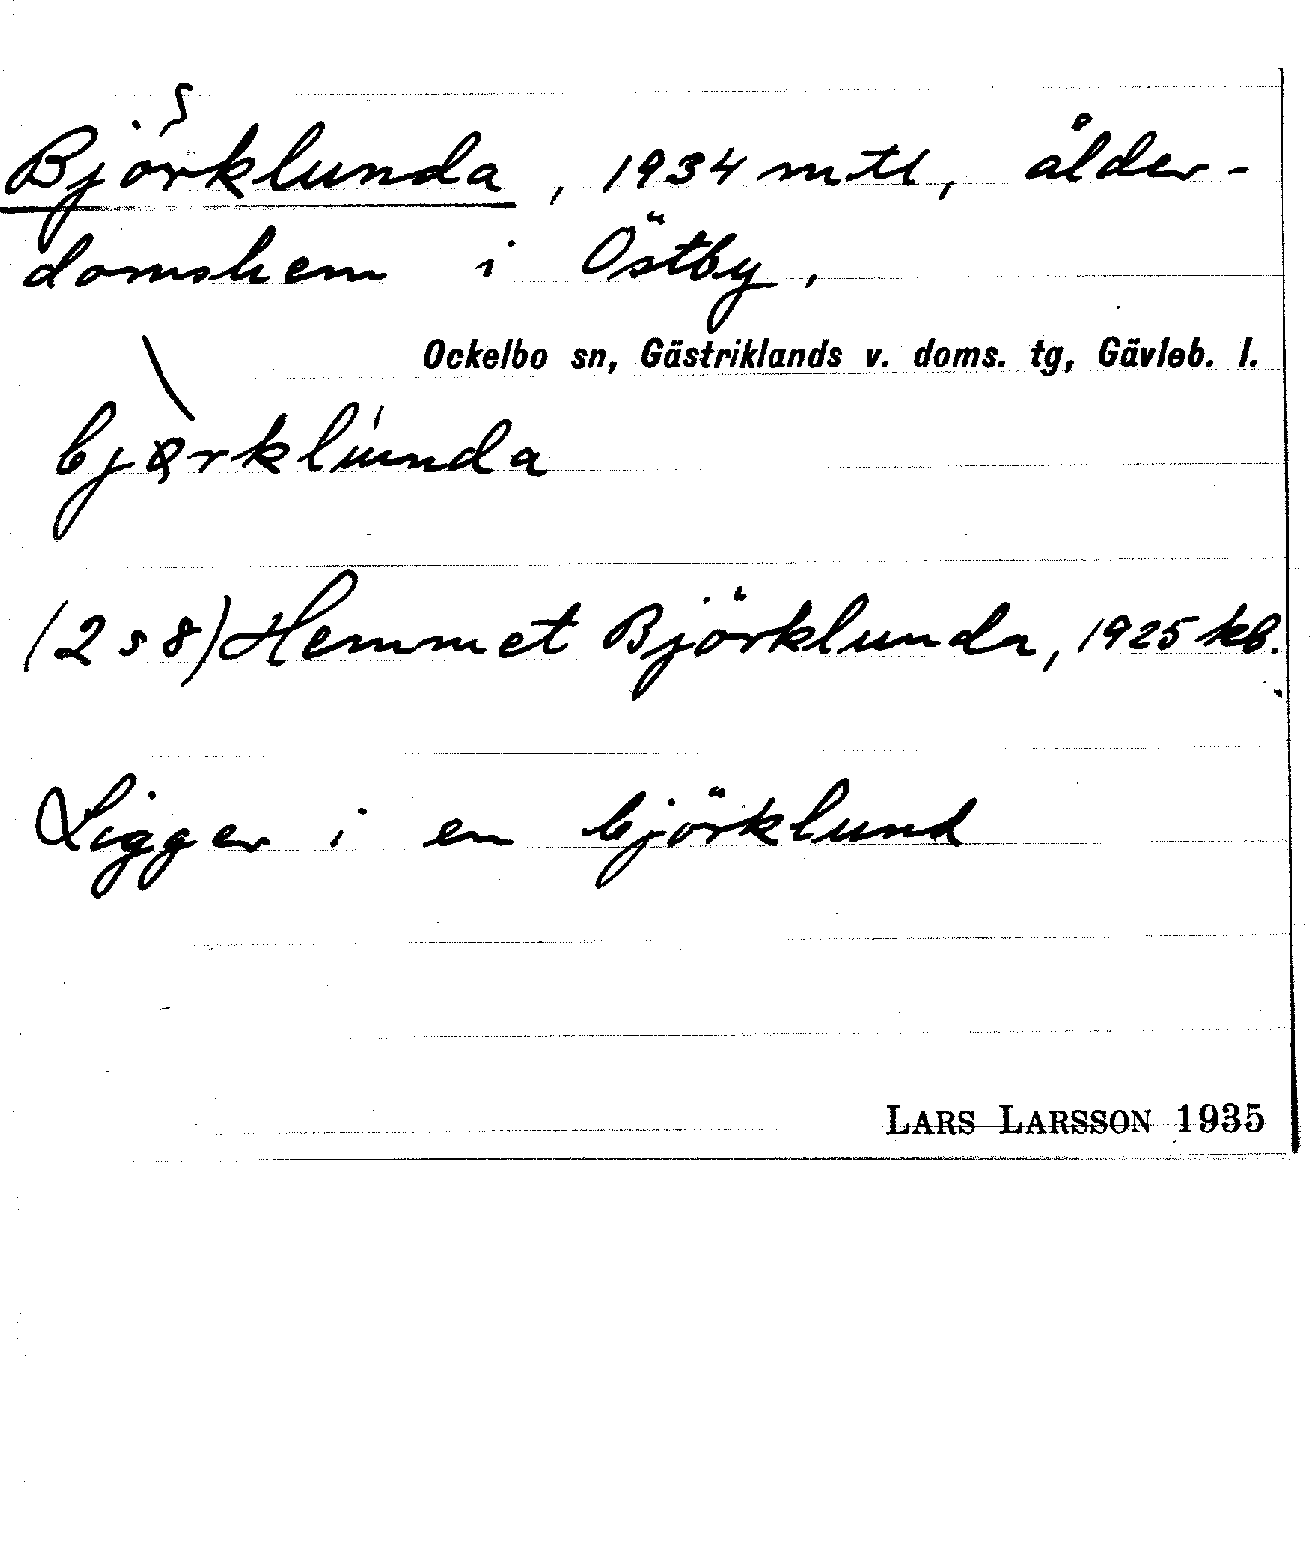 Björklunda, 1934 mtl, ålder-
domshem i Östby.
Ockelbo sn, Gästriklands v. doms. tg, Gävleb. l.
bjørklúnda
(2 s 8) Hemmet Björklunda, 1925 kb.
Ligger i en björklund
LARS LARSSON 1935